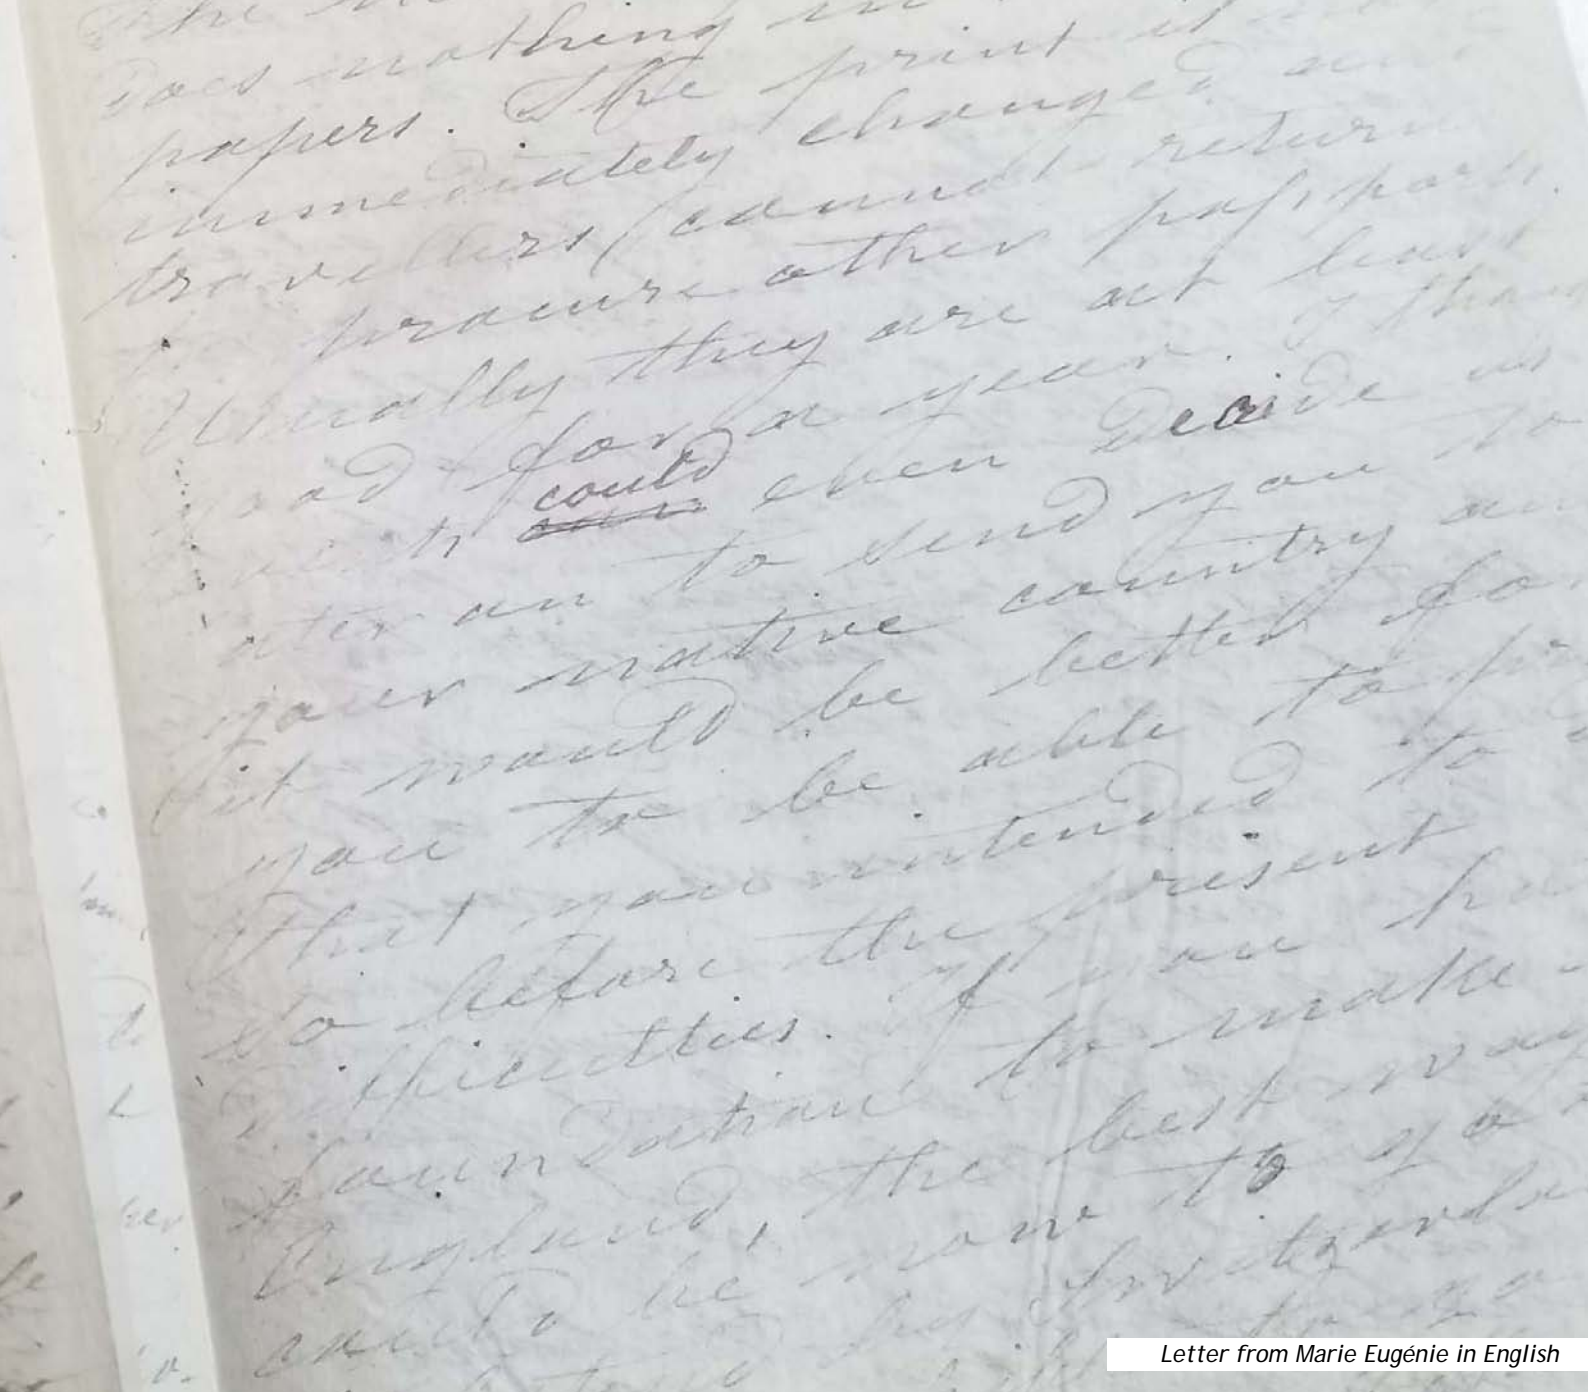 The
does nothing in
papers. The print is
immediately changed an
travellers cannot return
to procure other passports.
Usually they are at least
good for a year. I than
could even decide us
later on to send you to
your native country an
it would be better for
you to be able to pr
that you intended to
do before the present
difficulties. If you ha
foundation to make
England, the best way
could be now to go
his Switzerla
to go
Letter from Marie Eugénie in English